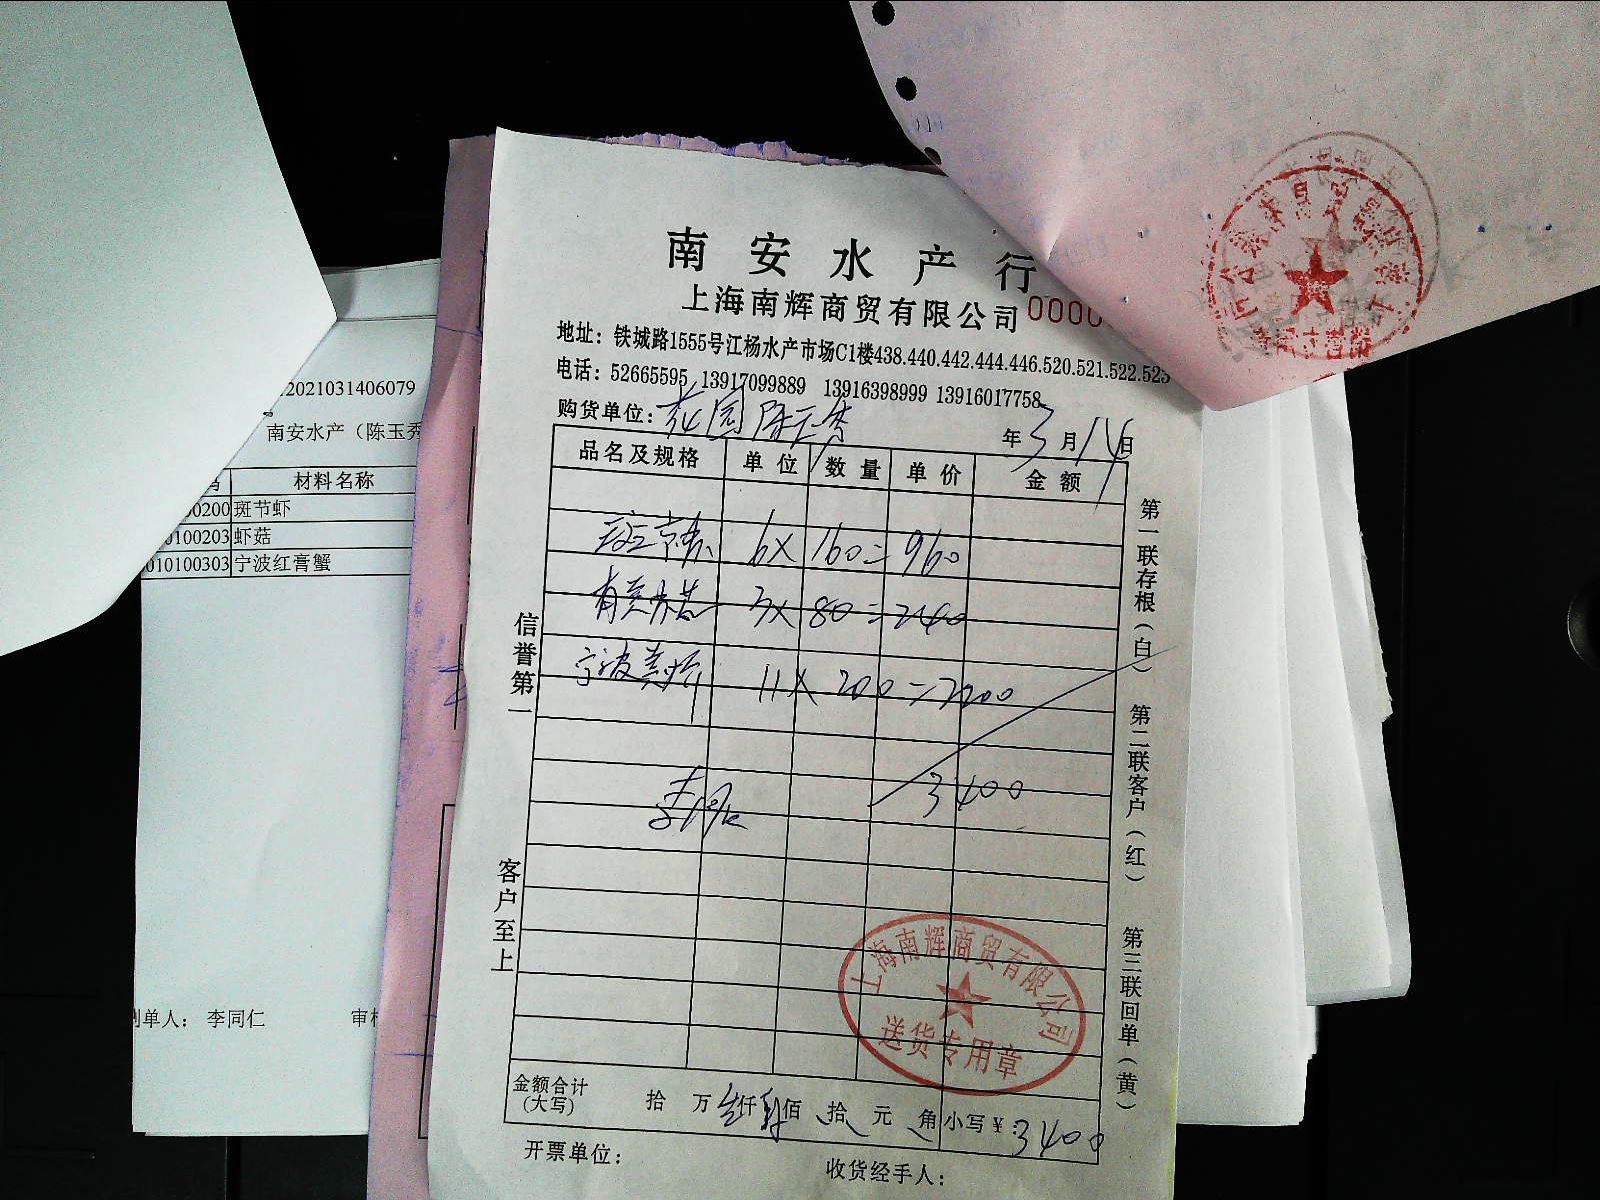 南安水产行
上海南辉商贸有限公司 0000
地址：铁城路1555号江杨水产市场C1楼438.440.442.444.446.520.521.522.523
电话：52665595 13917099889 13916398999 13916017758
购货单位：花园 陈玉秀
年 3 月 14 日
品名及规格 单位 数量 单价 金额
斑节虾 6× 160= 960
3× 80 =240
宁波 11× 200 =2200
3400
信誉第一
客户至上
第一联存根（白） 第二联客户（红） 第三联回单（黄）
上海南辉商贸有限公司
送货专用章
金额合计（大写） 拾 万 仟 佰 拾 元 角 小写¥：3400
开票单位： 收货经手人：
2021031406079
南安水产（陈玉秀
材料名称
00200 斑节虾
0100203 虾菇
010100303 宁波红膏蟹
制单人： 李同仁 审核